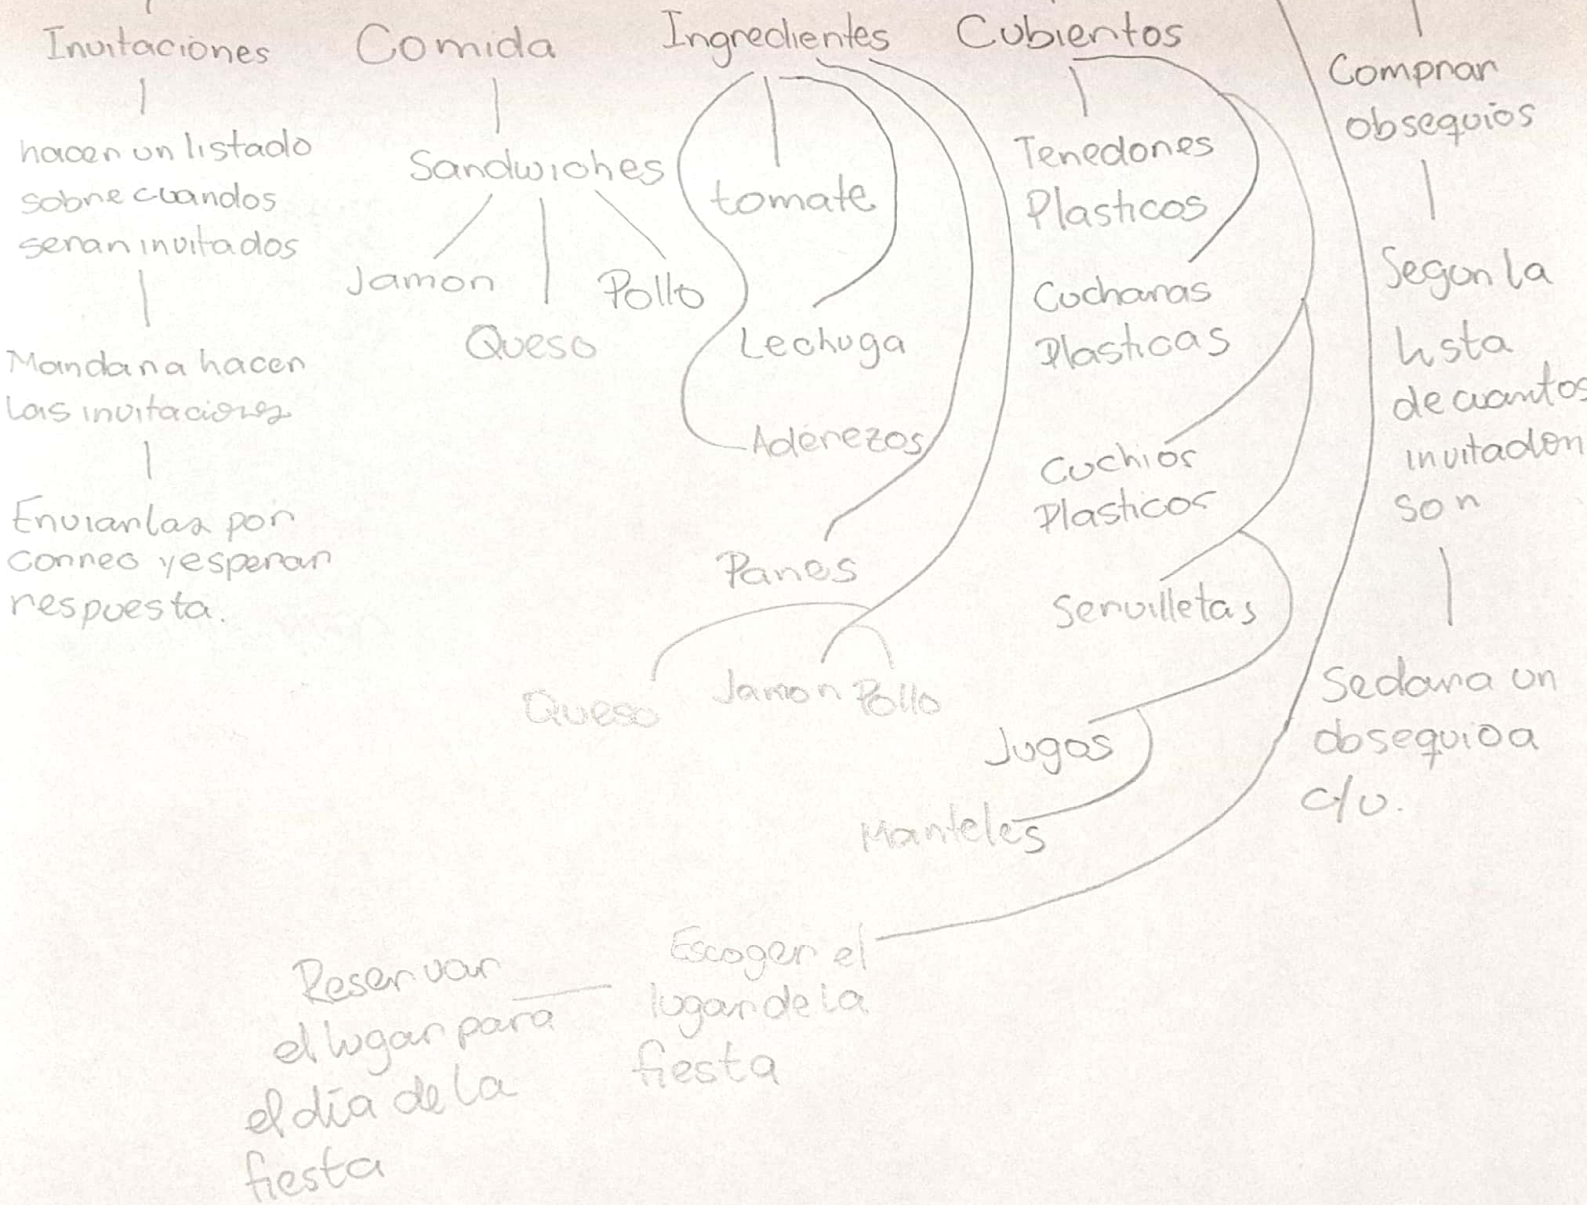 Invitaciones
hacer un listado
sobre cuandos
seran invitados
Mandar a hacer
las invitaciones
Enviarlas por
correo y esperar
respuesta.
Comida
Sandwiches
Jamon
Queso
Pollo
Ingredientes
tomate
Lechuga
Aderezos
Panes
Queso
Jamon
Pollo
Cubiertos
Tenedores
Plasticos
Cucharas
Plasticas
Cuchios
Plasticos
Servilletas
Jugos
Manteles
Comprar
obsequios
Segun la
lista
de cuantos
invitados
son
Se dara un
obsequio a
c/u.
Escoger el
lugar de la
fiesta
Reservar
el lugar para
el día de la
fiesta